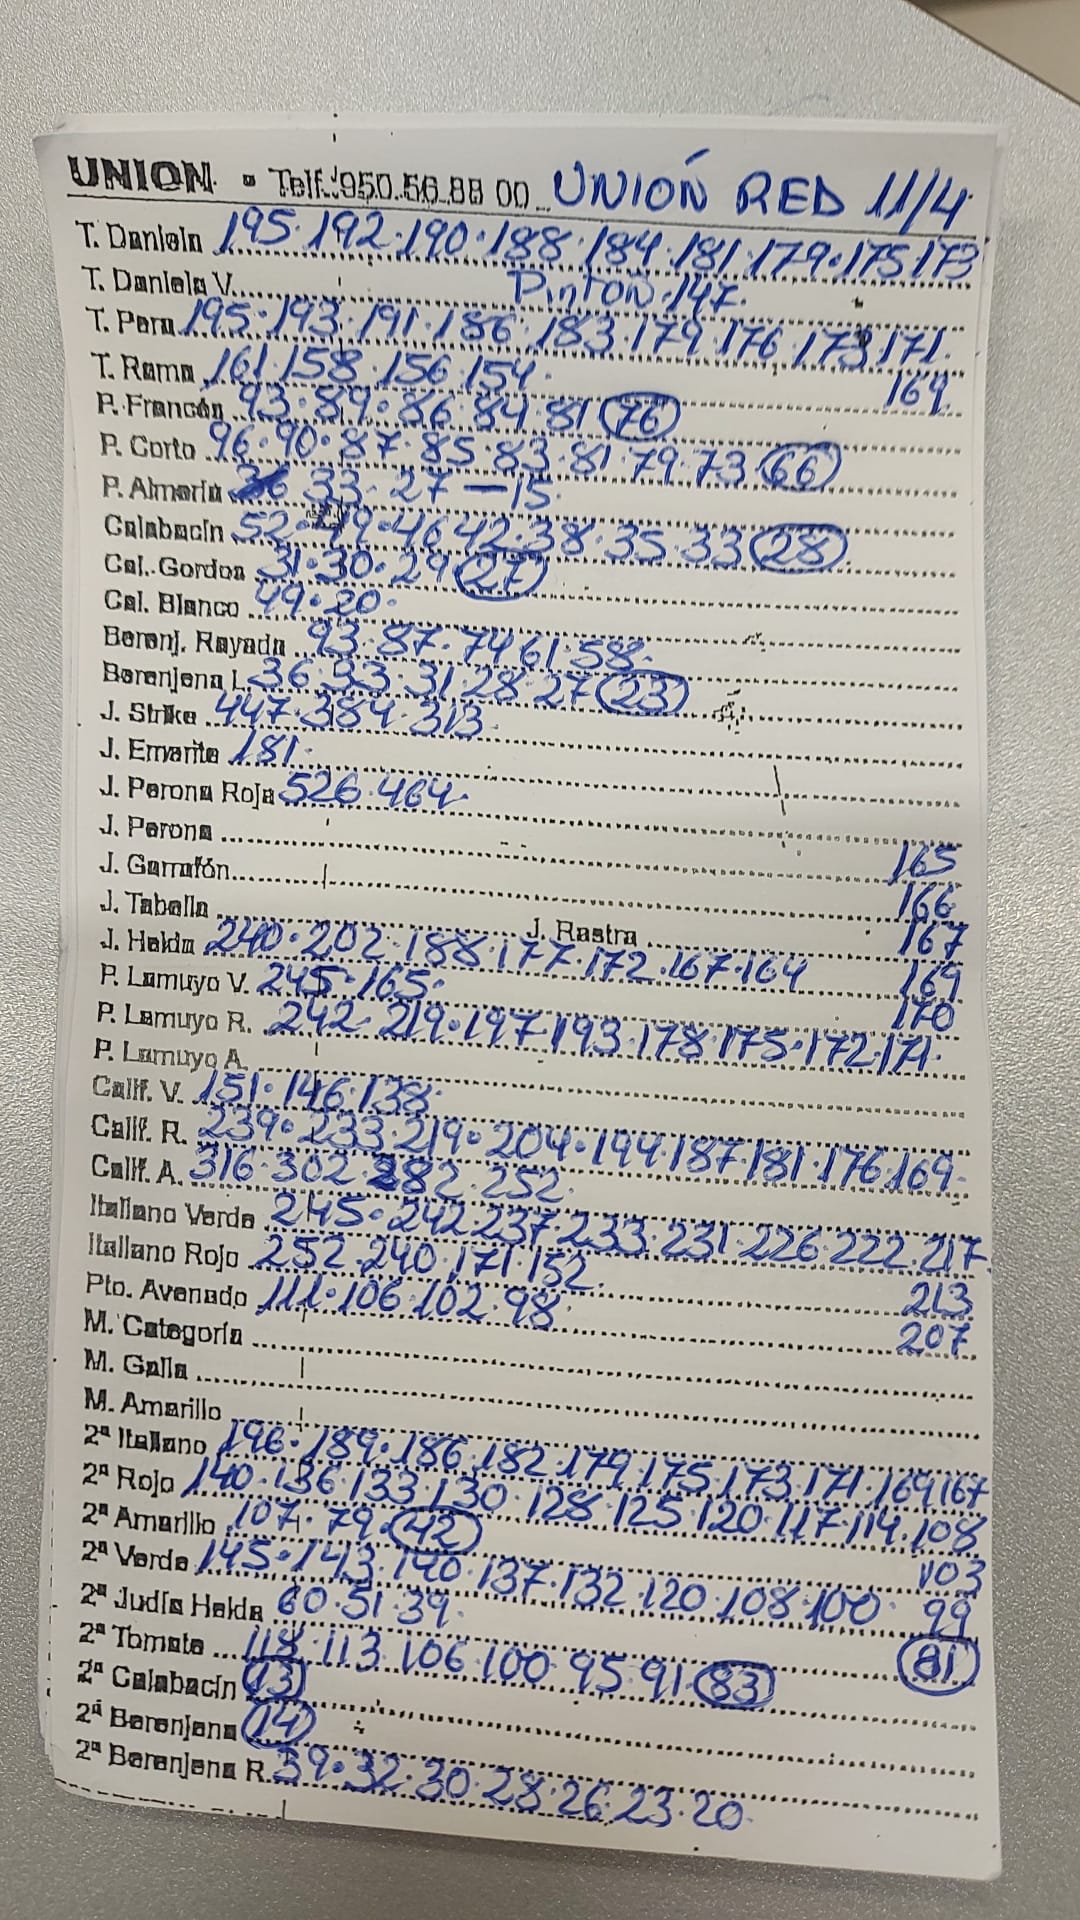 UNION • Telf. 950.56.88 00 UNIÓN RED 11/4
T. Daniela 195·192·190·188·184·181·179·175·173
T. Daniela V. Pintón·147·
T. Pera 195·193·191·186·183·179·176·173·171·
T. Rama 161·158·156·154· 169
P. Francés 93·89·86·84·81 76
P. Corto 96·90·87·85·83·81·79·73 66
P. Almería 33·27—15·
Calabacín 52·49·46·42·38·35·33 28
Cal. Gordos 31·30·29 27
Cal. Blanco 49·20·
Berenj. Rayada 93·87·74·61·58·
Berenjena L. 36·33·31·28·27 23
J. Strike 447·384·313·
J. Emerite 181·
J. Perona Roja 526·464·
J. Perona 165
J. Garrafón 166
J. Tabella J. Rastra 167
J. Helda 240·202·188·177·172·167·164 169
P. Lamuyo V. 245·165· 170
P. Lamuyo R. 242·219·197·193·178·175·172·171·
P. Lamuyo A.
Calif. V. 151·146·138·
Calif. R. 239·233·219·204·194·187·181·176·169·
Calif. A. 316·302·282·252·
Italiano Verde 245·242·237·233·231·226·222·217
Italiano Rojo 252·240·171·152· 213
Pto. Asado 111·106·102·98· 207
M. Categoría
M. Galia
M. Amarillo
2ª Italiano 196·189·186·182·179·175·173·171·169·167
2ª Rojo 140·136·133·130·128·125·120·117·114·108
2ª Amarillo 107·79· 42 103
2ª Verde 145·143·140·137·132·120·108·100· 99
2ª Judía Helda 60·51·39· 81
2ª Tomate 118·113·106·100·95·91 83
2ª Calabacín 13
2ª Berenjena 14
2ª Berenjena R. 39·32·30·28·26·23·20·